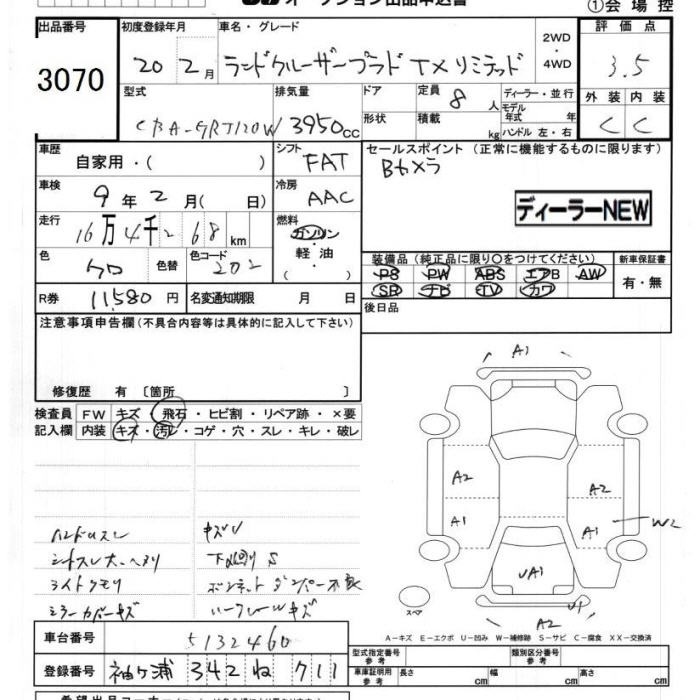 オークション出品申込書 ①会場控
出品番号 初度登録年月 車名・グレード 2WD ・ 4WD 評価点
3070 20 2月 ランドクルーザープラド TXリミテッド 3.5
型式 排気量 ドア 定員 8人 ディーラー・並行 外装 内装
CBA-GRJ120W 3950cc 形状 積載 kg モデル年式 年 ハンドル 左・右 C C
車歴 自家用・( ) シフト FAT セールスポイント (正常に機能するものに限ります)
Bカメラ
車検 9年2月( 日) 冷房 AAC
ディーラーNEW
走行 16万4千268km 燃料 ガソリン・軽油・( )
装備品 (純正品に限り○をつけてください) 新車保証書
色 クロ 色替 色コード 202
PS PW ABS エアB AW 有・無
SR ナビ TV カワ
R券 11,580円 名変通知期限 月 日 後日品
注意事項申告欄(不具合内容等は具体的に記入して下さい)
修復歴 有〔箇所 〕
検査員 FW キズ・飛石・ヒビ割・リペア跡・×要
記入欄 内装 キズ・汚レ・コゲ・穴・スレ・キレ・破レ
A1
A2 A2
A1 A1 W2
UA1
U1
A2
スペア
ハンドルスレ キズU
シートスレ大・ヘタリ 下廻りS
ライトクモリ ボンネットダンパー不良
ミラーカバーキズ
A-キズ E-エクボ U-凹み W-補修跡 S-サビ C-腐食 XX-交換済
車台番号 5132460
型式指定番号 参考 類別区分番号 参考
登録番号 袖ヶ浦 342 ね 711
車庫証明用 参考 長さ cm 幅 cm 高さ cm